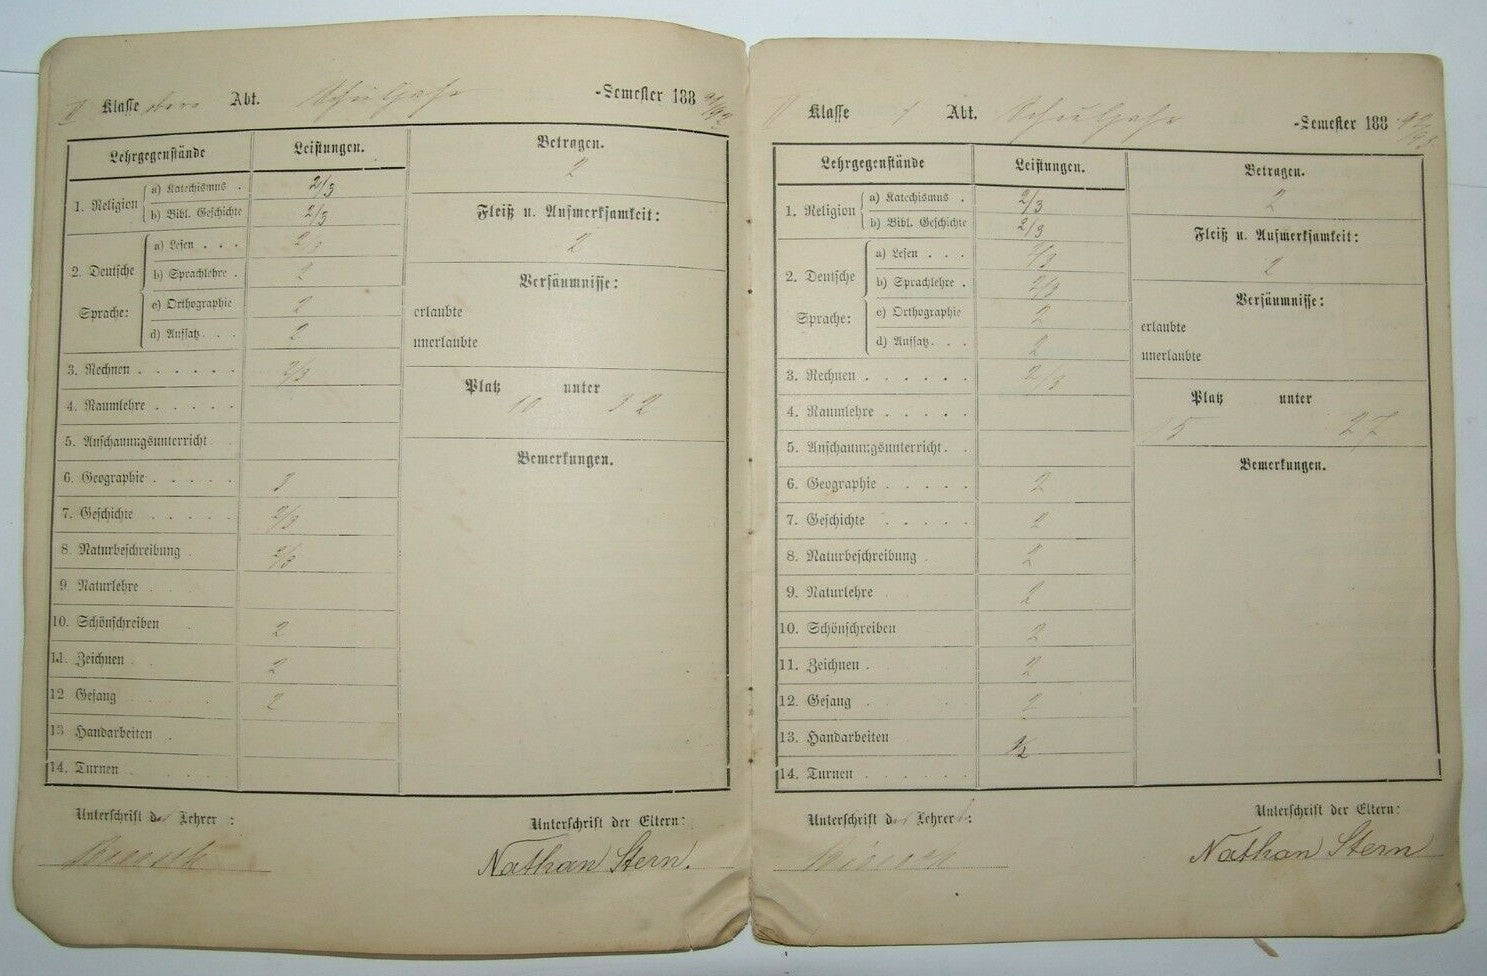 II Klasse Abt. Schuljahr -Semester 188 91/92
Lehrgegenstände Leistungen. Betragen.
2
1. Religion a) Katechismus . 2/3
b) Bibl. Geschichte 2/3
Fleiß u. Aufmerksamkeit:
2
2. Deutsche Sprache: a) Lesen . . .
b) Sprachlehre . 2
c) Orthographie 2
d) Aufsatz . . . 2
Versäumnisse:
erlaubte
unerlaubte
3. Rechnen . . . . . . 2/3
Platz 10 unter 32
4. Raumlehre . . . . .
5. Anschauungsunterricht . .
Bemerkungen.
6. Geographie . . . . .
7. Geschichte . . . . . 2/3
8. Naturbeschreibung . 2/3
9 Naturlehre . .
10. Schönschreiben . 2
11. Zeichnen . . 2
12 Gesang . . . 2
13 Handarbeiten .
14. Turnen . . . . .
Unterschrift des Lehrer :
Unterschrift der Eltern:
Nathan Stern.
II Klasse Abt. Schuljahr -Semester 188 92/93
Lehrgegenstände Leistungen. Betragen.
2
1. Religion a) Katechismus . 2/3
b) Bibl. Geschichte 2/3
Fleiß u. Aufmerksamkeit:
2
2. Deutsche Sprache: a) Lesen . . . 2/3
b) Sprachlehre . 2/3
c) Orthographie 2
d) Aufsatz . . . 2
Versäumnisse:
erlaubte
unerlaubte
3. Rechnen . . . . . . 2/3
Platz 15 unter 27
4. Raumlehre . . . . .
5. Anschauungsunterricht . .
Bemerkungen.
6. Geographie . . . . . 2
7. Geschichte . . . . . 2
8. Naturbeschreibung . 2
9. Naturlehre . . 2
10. Schönschreiben 2
11. Zeichnen . 2
12. Gesang . . . 2
13. Handarbeiten 1/2
14. Turnen . . . . .
Unterschrift des Lehrers:
Unterschrift der Eltern:
Nathan Stern